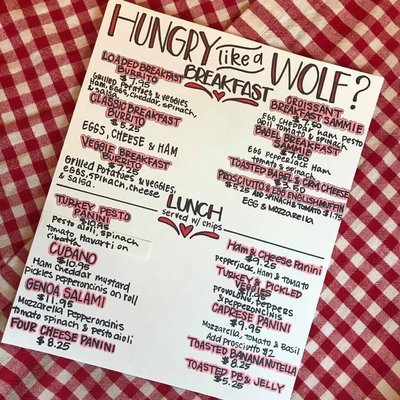 HUNGRY like a WOLF?
BREAKFAST
LOADED BREAKFAST
BURRITO
$7.95
Grilled Potatoes & veggies,
Ham, eggs, cheddar, spinach,
& salsa.
CLASSIC BREAKFAST
BURRITO
$5.25
EGGS, CHEESE & HAM
VEGGIE BREAKFAST
BURRITO
$7.25
Grilled Potatoes & veggies,
eggs, spinach, cheese
& salsa.
CROISSANT
BREAKFAST SAMMIE
$7.50
EGG cheddar ham pesto
aoli tomato & spinach
BABEL BREAKFAST
SAMMIE
EGG PepperJack Ham
tomato & spinach
TOASTED BABEL & CRM CHEESE
$3.50
PROSCIUTTO & EGG ENGLISH MUFFIN
$5.25 ADD SPINACH & TOMATO $1.75
EGG & Mozzarella
LUNCH
served w/ chips
TURKEY PESTO
PANINI
$10.95
Pesto aioli, spinach
tomato, Havarti on
cibatta
CUBANO
$10.95
Ham cheddar mustard
pickles Pepperoncinis on roll
GENOA SALAMI
$11.95
Mozzarella Pepperoncinis
Tomato spinach & Pesto aioli
FOUR CHEESE PANINI
$8.25
Ham & Cheese Panini
$9.25
Pepperjack, Ham & Tomato
TURKEY & PICKLED
VEGGIES
$11.95
provolone, peppers
& pepperoncinis
CAPRESE PANINI
$9.95
Mozzarella, Tomato & Basil
Add Prosciutto $2
TOASTED BANANA NUTELLA
$8.25
TOASTED PB & JELLY
$5.25